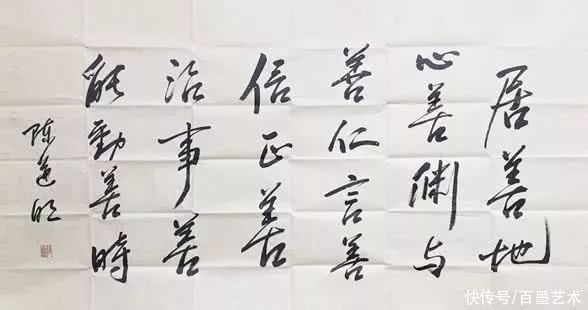 居善地
心善渊与
善仁言善
信正善
治事善
能動善時
陈道明
快传号/百墨艺术